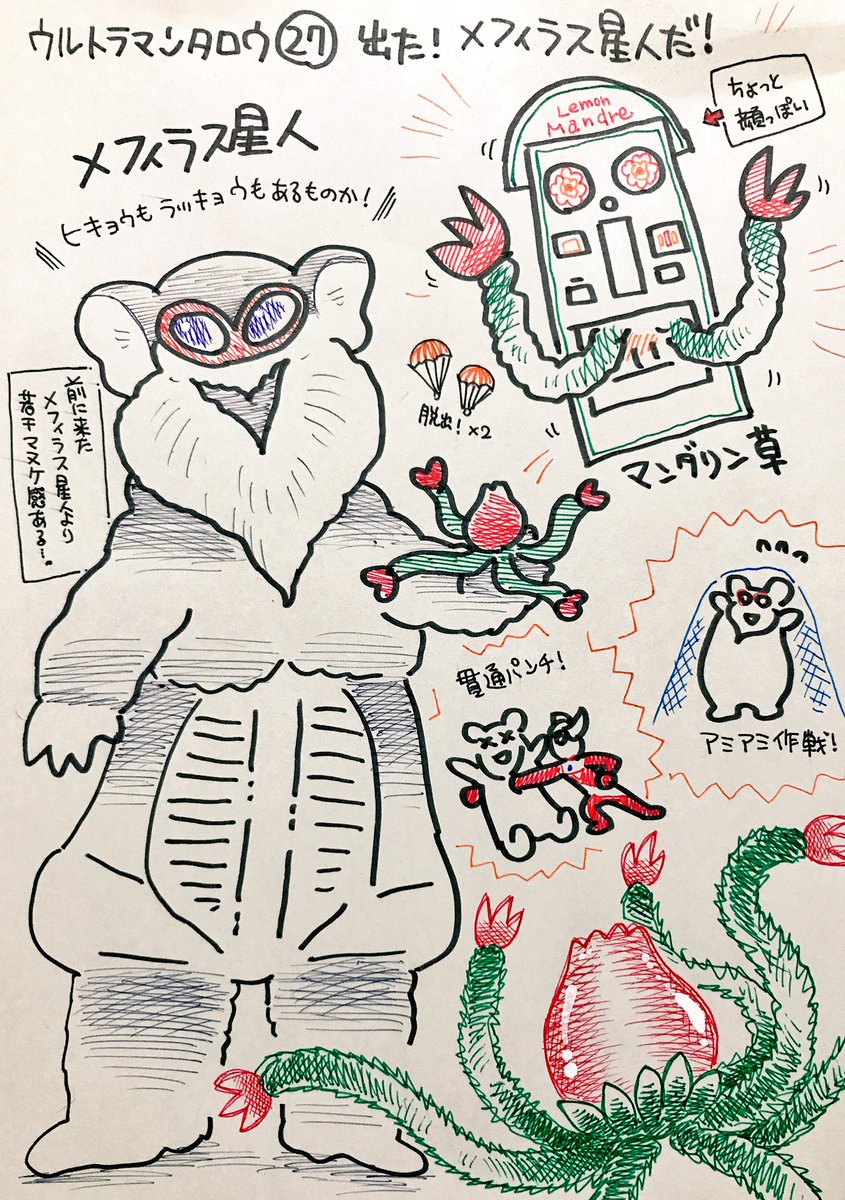 ウルトラマンタロウ㉗ 出た！メフィラス星人だ！
メフィラス星人
ヒキョウもラッキョウもあるものか！
Lemon
Mandre
ちょっと
顔っぽい
脱出！×2
マンダリン草
前に来た
メフィラス星人より
若干マヌケ感ある…。
貫通パンチ！
アミアミ作戦！